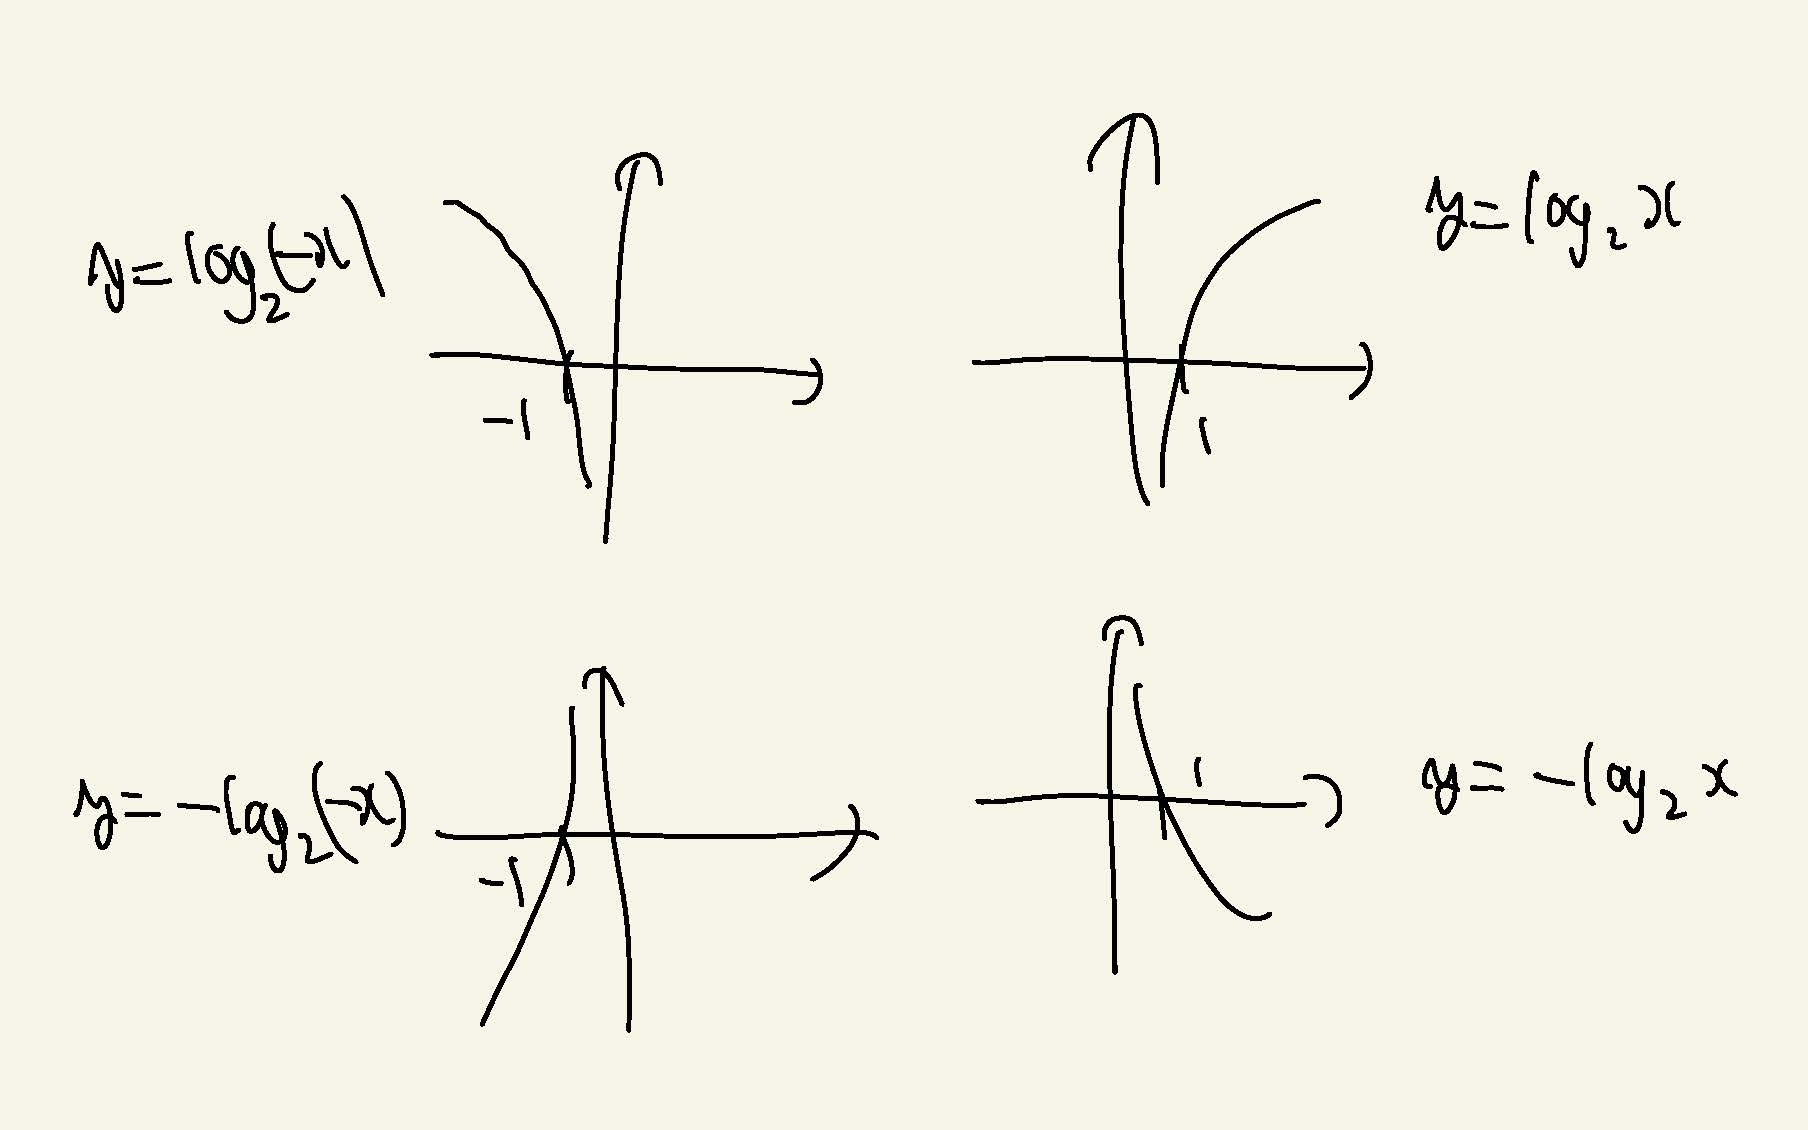 y=log₂(-x)
-1
y=log₂x
1
y=-log₂(-x)
-1
1
y=-log₂x